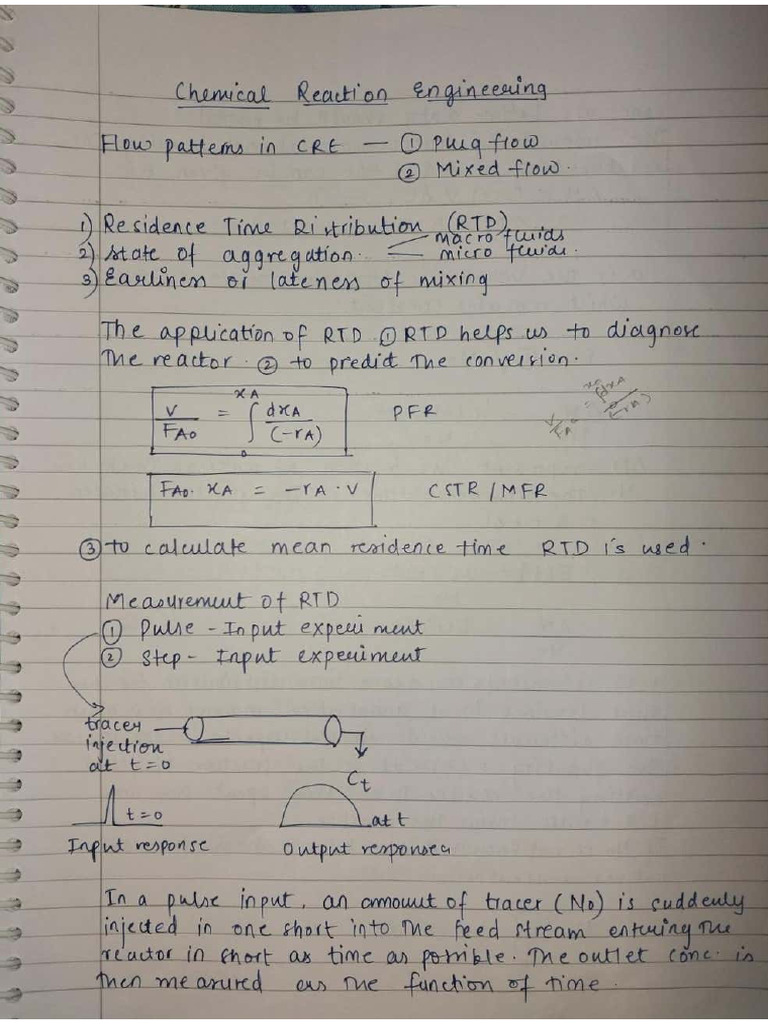 Chemical Reaction Engineering
Flow patterns in CRE — ① Plug flow
② Mixed flow.
1) Residence Time Distribution (RTD)
2) State of aggregation. macro fluids
micro fluids.
3) Earliness or lateness of mixing
The application of RTD ① RTD helps us to diagnose
the reactor. ② to predict the conversion.
V/FA0 = ∫₀^xA dxA/(-rA) PFR
FA0. xA = -rA . V CSTR / MFR
③ to calculate mean residence time RTD is used.
Measurement of RTD
① Pulse - Input experiment
② Step - Input experiment
tracer
injection
at t=0
Ct
t=0
at t
Input response Output response
In a pulse input, an amount of tracer (No) is suddenly
injected in one short into the feed stream entering the
reactor in short as time as possible. The outlet conc. is
then measured as the function of time.